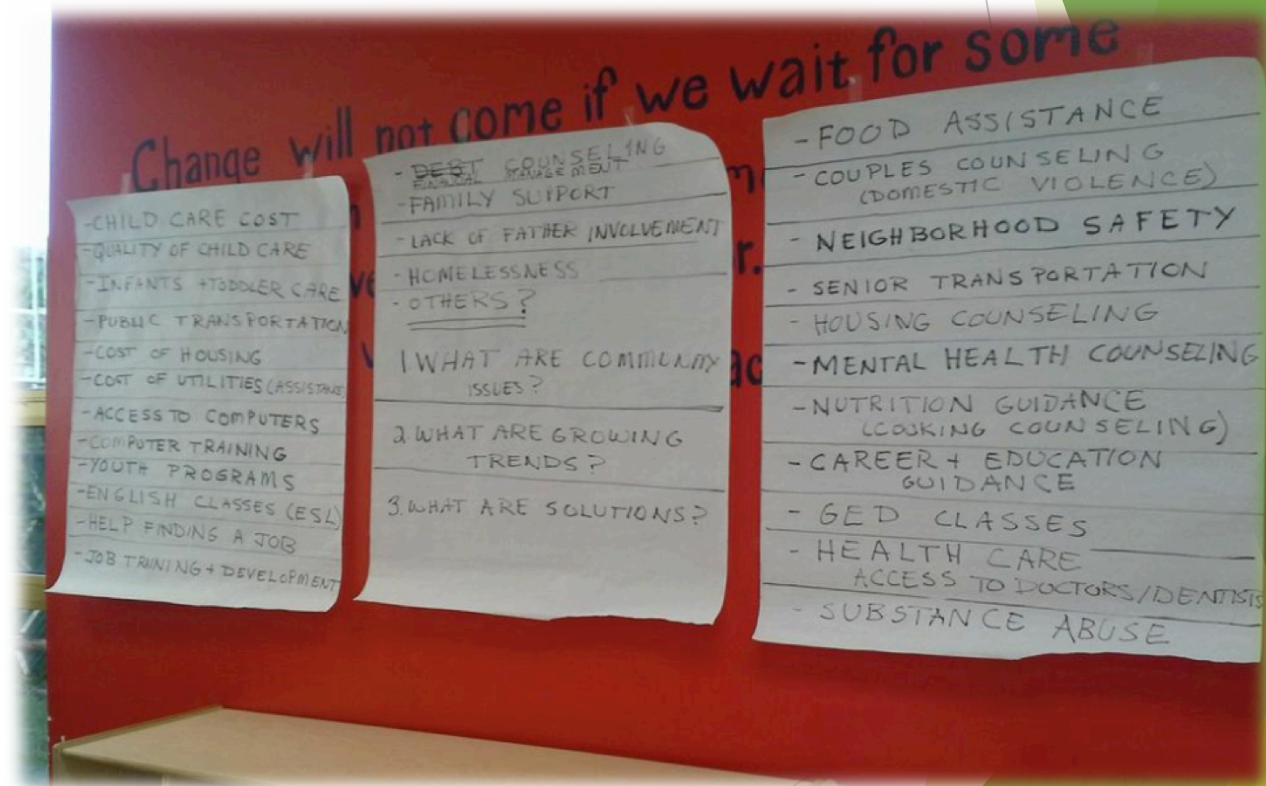 Change will not come if we wait for some
r.
-CHILD CARE COST
-QUALITY OF CHILD CARE
-INFANTS +TODDLER CARE
-PUBLIC TRANSPORTATION
-COST OF HOUSING
-COST OF UTILITIES (ASSISTANCE)
-ACCESS TO COMPUTERS
-COMPUTER TRAINING
-YOUTH PROGRAMS
-ENGLISH CLASSES (ESL)
-HELP FINDING A JOB
-JOB TRAINING + DEVELOPMENT
- DEBT COUNSELING
FINANCIAL MANAGEMENT
-FAMILY SUPPORT
-LACK OF FATHER INVOLVEMENT
-HOMELESSNESS
- OTHERS?
1. WHAT ARE COMMUNITY
ISSUES?
2. WHAT ARE GROWING
TRENDS?
3. WHAT ARE SOLUTIONS?
-FOOD ASSISTANCE
-COUPLES COUNSELING
(DOMESTIC VIOLENCE)
- NEIGHBORHOOD SAFETY
- SENIOR TRANSPORTATION
- HOUSING COUNSELING
-MENTAL HEALTH COUNSELING
-NUTRITION GUIDANCE
(COOKING COUNSELING)
-CAREER + EDUCATION
GUIDANCE
- GED CLASSES
- HEALTH CARE
ACCESS TO DOCTORS/DENTISTS
- SUBSTANCE ABUSE